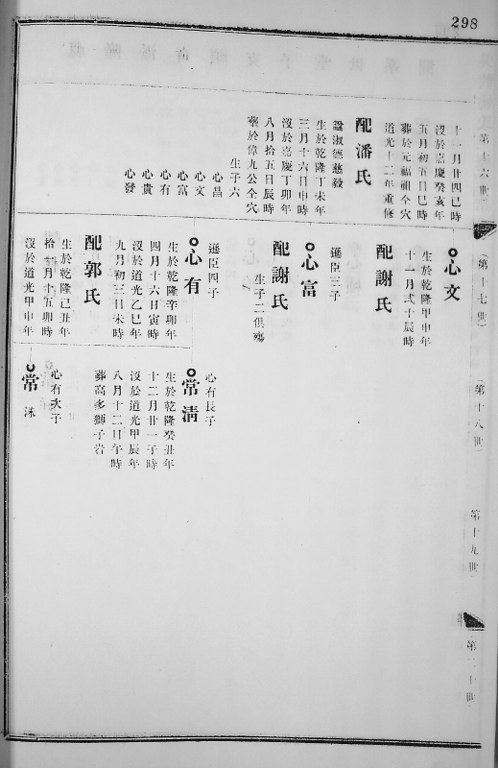 298
第十六世
十一月廿四巳時
沒於嘉慶癸亥年
五月初五日巳時
葬於元福祖仝穴
道光十二年重修
配潘氏
謚淑德慈毅
生於乾隆丁未年
三月十六日申時
沒於嘉慶丁卯年
八月拾五日辰時
葬於偉九公仝穴
生子六
心昌
心文
心富
心有
心貴
心發
第十七世
心文
生於乾隆甲申年
十一月弍十辰時
配謝氏
心富
遜臣三子
配謝氏
生子二俱殤
遜臣四子
心有
生於乾隆辛卯年
四月十六日寅時
沒於道光乙巳年
九月初三日未時
配郭氏
生於乾隆己丑年
拾一月十五卯時
沒於道光甲申年
第十八世
心有長子
常清
生於乾隆癸丑年
十二月廿一子時
沒於道光甲辰年
八月十二日午時
葬高多獅子岩
心有次子
常洙
第十九世
第二十世